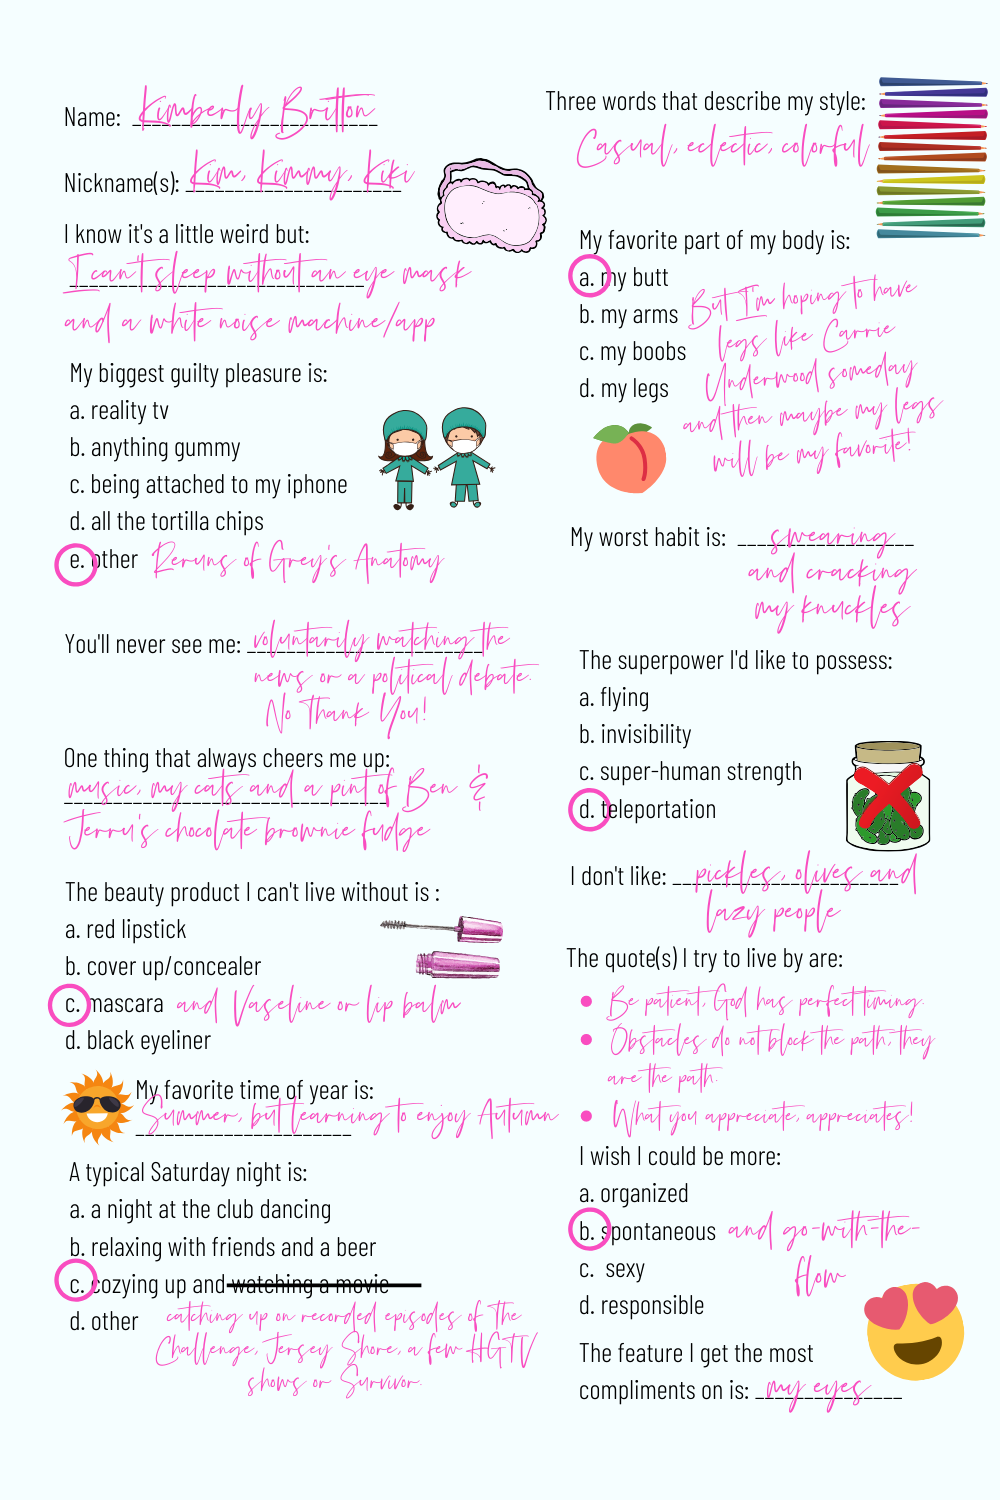 Name: Kimberly Britton
Nickname(s): Kim, Kimmy, Kiki
I know it's a little weird but:
I can't sleep without an eye mask
and a white noise machine/app
My biggest guilty pleasure is:
a. reality tv
b. anything gummy
c. being attached to my iphone
d. all the tortilla chips
e. other Reruns of Grey's Anatomy
You'll never see me: voluntarily watching the
news or a political debate.
No Thank You!
One thing that always cheers me up:
music, my cats and a pint of Ben &
Jerry's chocolate brownie fudge
The beauty product I can't live without is :
a. red lipstick
b. cover up/concealer
c. mascara and Vaseline or lip balm
d. black eyeliner
My favorite time of year is:
Summer, but learning to enjoy Autumn
A typical Saturday night is:
a. a night at the club dancing
b. relaxing with friends and a beer
c. cozying up and watching a movie
d. other catching up on recorded episodes of The
Challenge, Jersey Shore, a few HGTV
shows or Survivor.
Three words that describe my style:
Casual, eclectic, colorful
My favorite part of my body is:
a. my butt
b. my arms
c. my boobs
d. my legs
But I'm hoping to have
legs like Carrie
Underwood someday
and then maybe my legs
will be my favorite!
My worst habit is: swearing
and cracking
my knuckles
The superpower I'd like to possess:
a. flying
b. invisibility
c. super-human strength
d. teleportation
I don't like: pickles, olives and
lazy people
The quote(s) I try to live by are:
• Be patient, God has perfect timing.
• Obstacles do not block the path, they
are the path.
• What you appreciate, appreciates!
I wish I could be more:
a. organized
b. spontaneous and go-with-the-
flow
c. sexy
d. responsible
The feature I get the most
compliments on is: my eyes